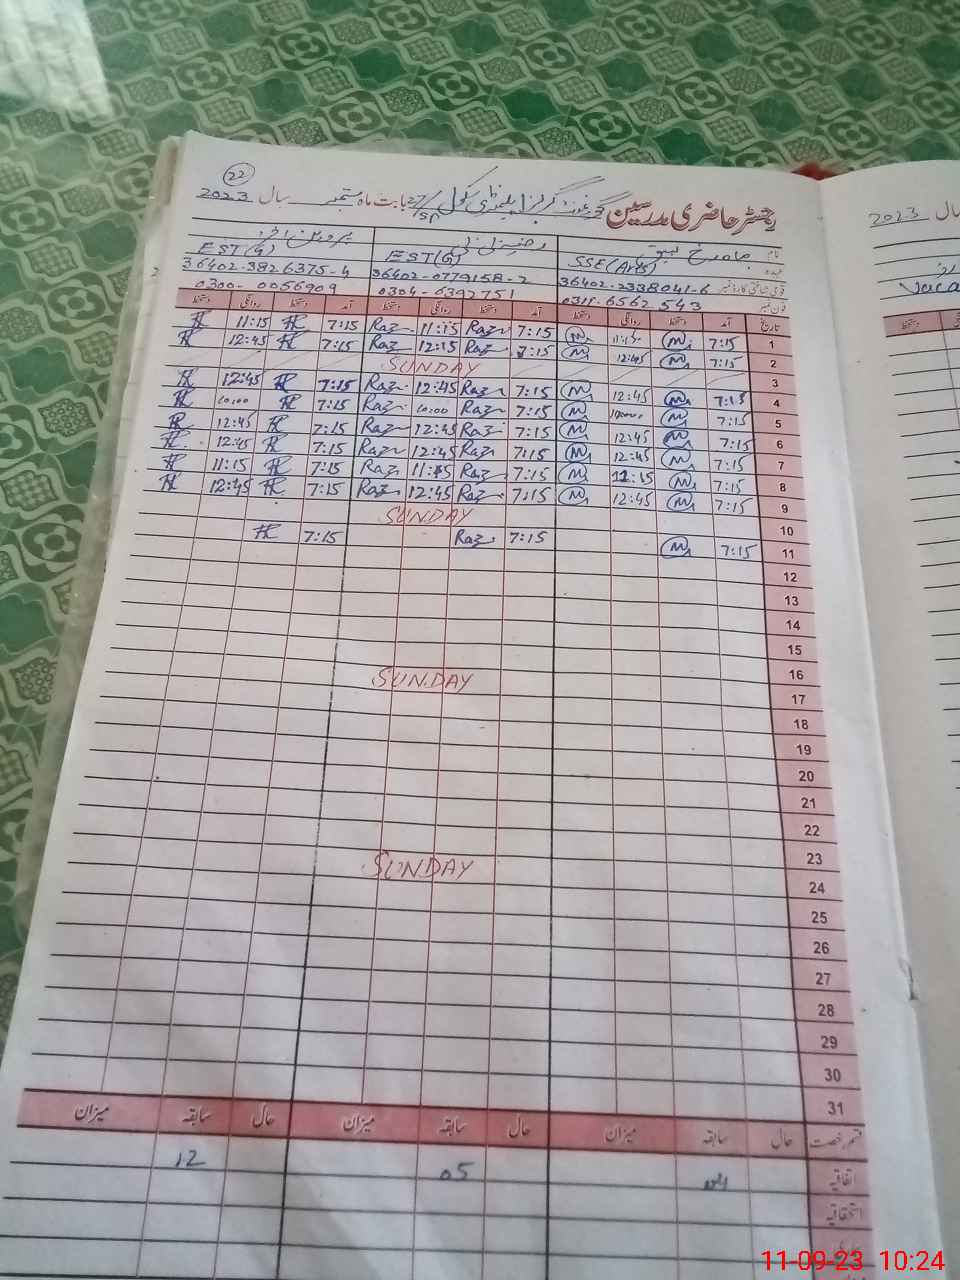 22
رجسٹر حاضری مدرسین گورنمنٹ گرلز ایلیمنٹری سکول 27/SP بابت ماہ ستمبر سال 2023
نام
عہدہ SSE(Arts) EST(G) EST(G)
قومی شناختی کارڈ نمبر 36402-2338041-6 36402-0779158-2 36402-3826375-4
فون نمبر 0311-6562543 0304-6392751 0300-0056909
تاریخ آمد دستخط روانگی دستخط آمد دستخط روانگی دستخط آمد دستخط روانگی دستخط
1 7:15 7:15 Raz 11:15 Raz 7:15 11:15
2 7:15 12:45 7:15 Raz 12:15 Raz 7:15 12:45
3 SUNDAY
4 7:15 12:45 7:15 Raz 12:45 Raz 7:15 12:45
5 7:15 7:15 Raz 10:00 Raz 7:15 10:00
6 7:15 12:45 7:15 Raz 12:45 Raz 7:15 12:45
7 7:15 12:45 7:15 Raz 12:45 Raz 7:15 12:45
8 7:15 11:15 7:15 Raz 11:15 Raz 7:15 11:15
9 7:15 12:45 7:15 Raz 12:45 Raz 7:15 12:45
10 SUNDAY
11 7:15 7:15 Raz 7:15
12
13
14
15
16
17 SUNDAY
18
19
20
21
22
23
24 SUNDAY
25
26
27
28
29
30
31
قسم رخصت حال سابقہ میزان حال سابقہ میزان حال سابقہ میزان
اتفاقیہ 05 12
استحقاقیہ
2023 سال
دستخط
11-09-23 10:24